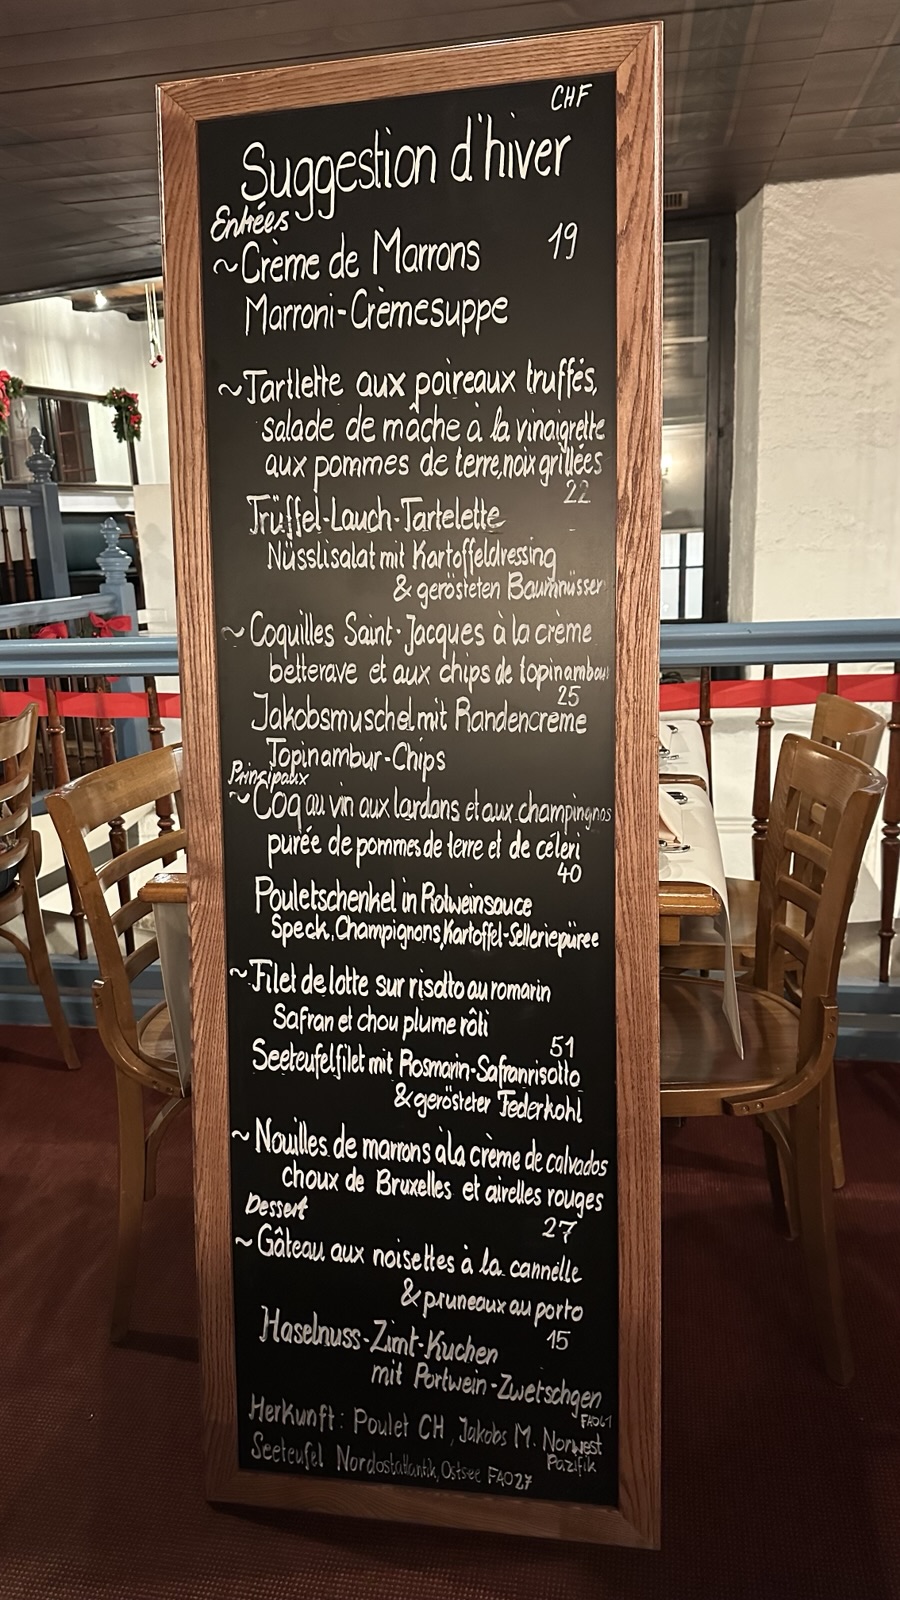 CHF
Suggestion d'hiver
Entrées
~Crème de Marrons 19
Marroni-Crèmesuppe
~Tartlette aux poireaux truffés,
salade de mâche à la vinaigrette
aux pommes de terre, noix grillées
22
Trüffel-Lauch-Tartelette
Nüsslisalat mit Kartoffeldressing
& gerösteten Baumnüssen
~Coquilles Saint-Jacques à la crème
betterave et aux chips de topinambour
25
Jakobsmuschel mit Randencrème
Topinambur-Chips
Principaux
~Coq au vin aux lardons et aux champingnos
purée de pommes de terre et de céleri
40
Pouletschenkel in Rotweinsauce
Speck, Champignons, Kartoffel-Selleriepüree
~Filet de lotte sur risotto au romarin
Safran et chou plume rôti
51
Seeteufelfilet mit Rosmarin-Safranrisotto
& gerösteter Federkohl
~Nouilles de marrons à la crème de calvados
choux de Bruxelles et airelles rouges
27
Dessert
~Gâteau aux noisettes à la cannelle
& pruneaux au porto
15
Haselnuss-Zimt-Kuchen
mit Portwein-Zwetschgen
Herkunft: Poulet CH, Jakobs M. Norwest
Pazifik
FAO61
Seeteufel Nordostatlantik, Ostsee FAO27